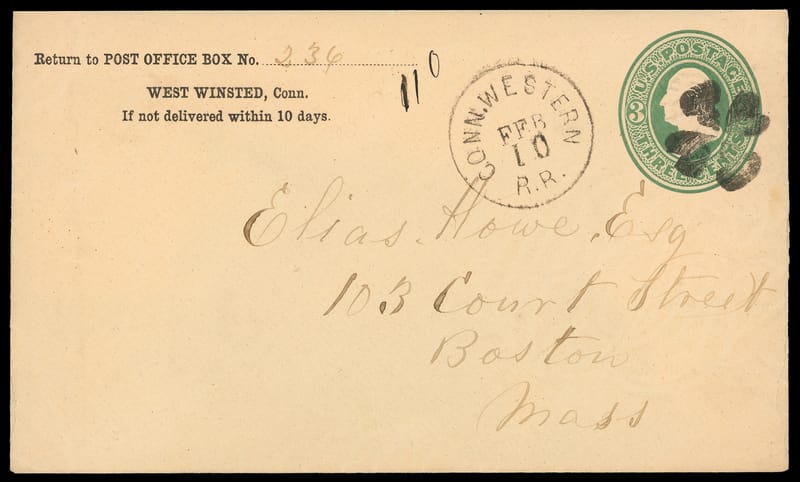 Return to POST OFFICE BOX No. 236
WEST WINSTED, Conn.
If not delivered within 10 days.
110
CONN. WESTERN
FEB
10
R.R.
U.S. POSTAGE
3
THREE CENTS
Elias Howe, Esq
103 Court Street
Boston
Mass